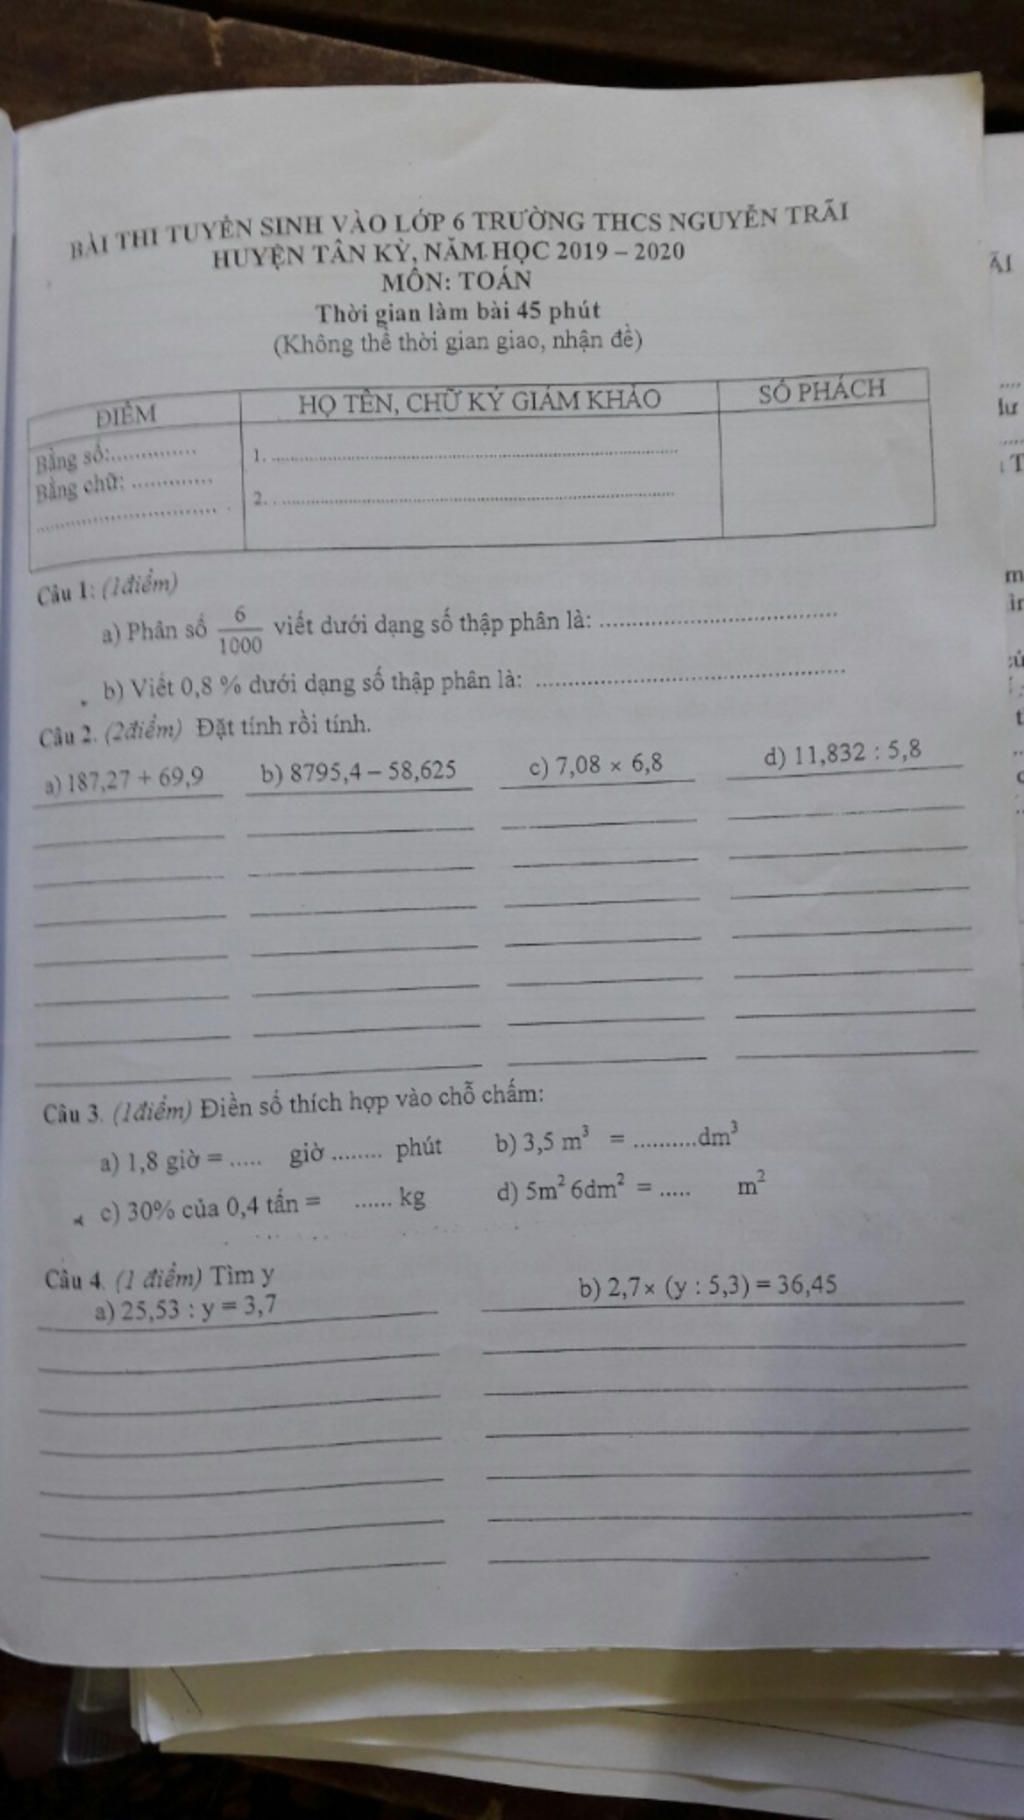 BÀI THI TUYỂN SINH VÀO LỚP 6 TRƯỜNG THCS NGUYỄN TRÃI
HUYỆN TÂN KỲ, NĂM HỌC 2019 – 2020
MÔN: TOÁN
Thời gian làm bài 45 phút
(Không thể thời gian giao, nhận đề)
ĐIỂM HỌ TÊN, CHỮ KÝ GIÁM KHẢO SỐ PHÁCH
Bằng số:..............
Bằng chữ: .............
1. ..............................
2. ..............................
Câu 1: (1điểm)
a) Phân số 6/1000 viết dưới dạng số thập phân là: ..............................
b) Viết 0,8 % dưới dạng số thập phân là: ..............................
Câu 2. (2điểm) Đặt tính rồi tính.
a) 187,27 + 69,9 b) 8795,4 – 58,625 c) 7,08 × 6,8 d) 11,832 : 5,8
Câu 3. (1điểm) Điền số thích hợp vào chỗ chấm:
a) 1,8 giờ = ..... giờ ........ phút b) 3,5 m³ = ..........dm³
c) 30% của 0,4 tấn = ...... kg d) 5m² 6dm² = ..... m²
Câu 4. (1 điểm) Tìm y
a) 25,53 : y = 3,7 b) 2,7× (y : 5,3) = 36,45